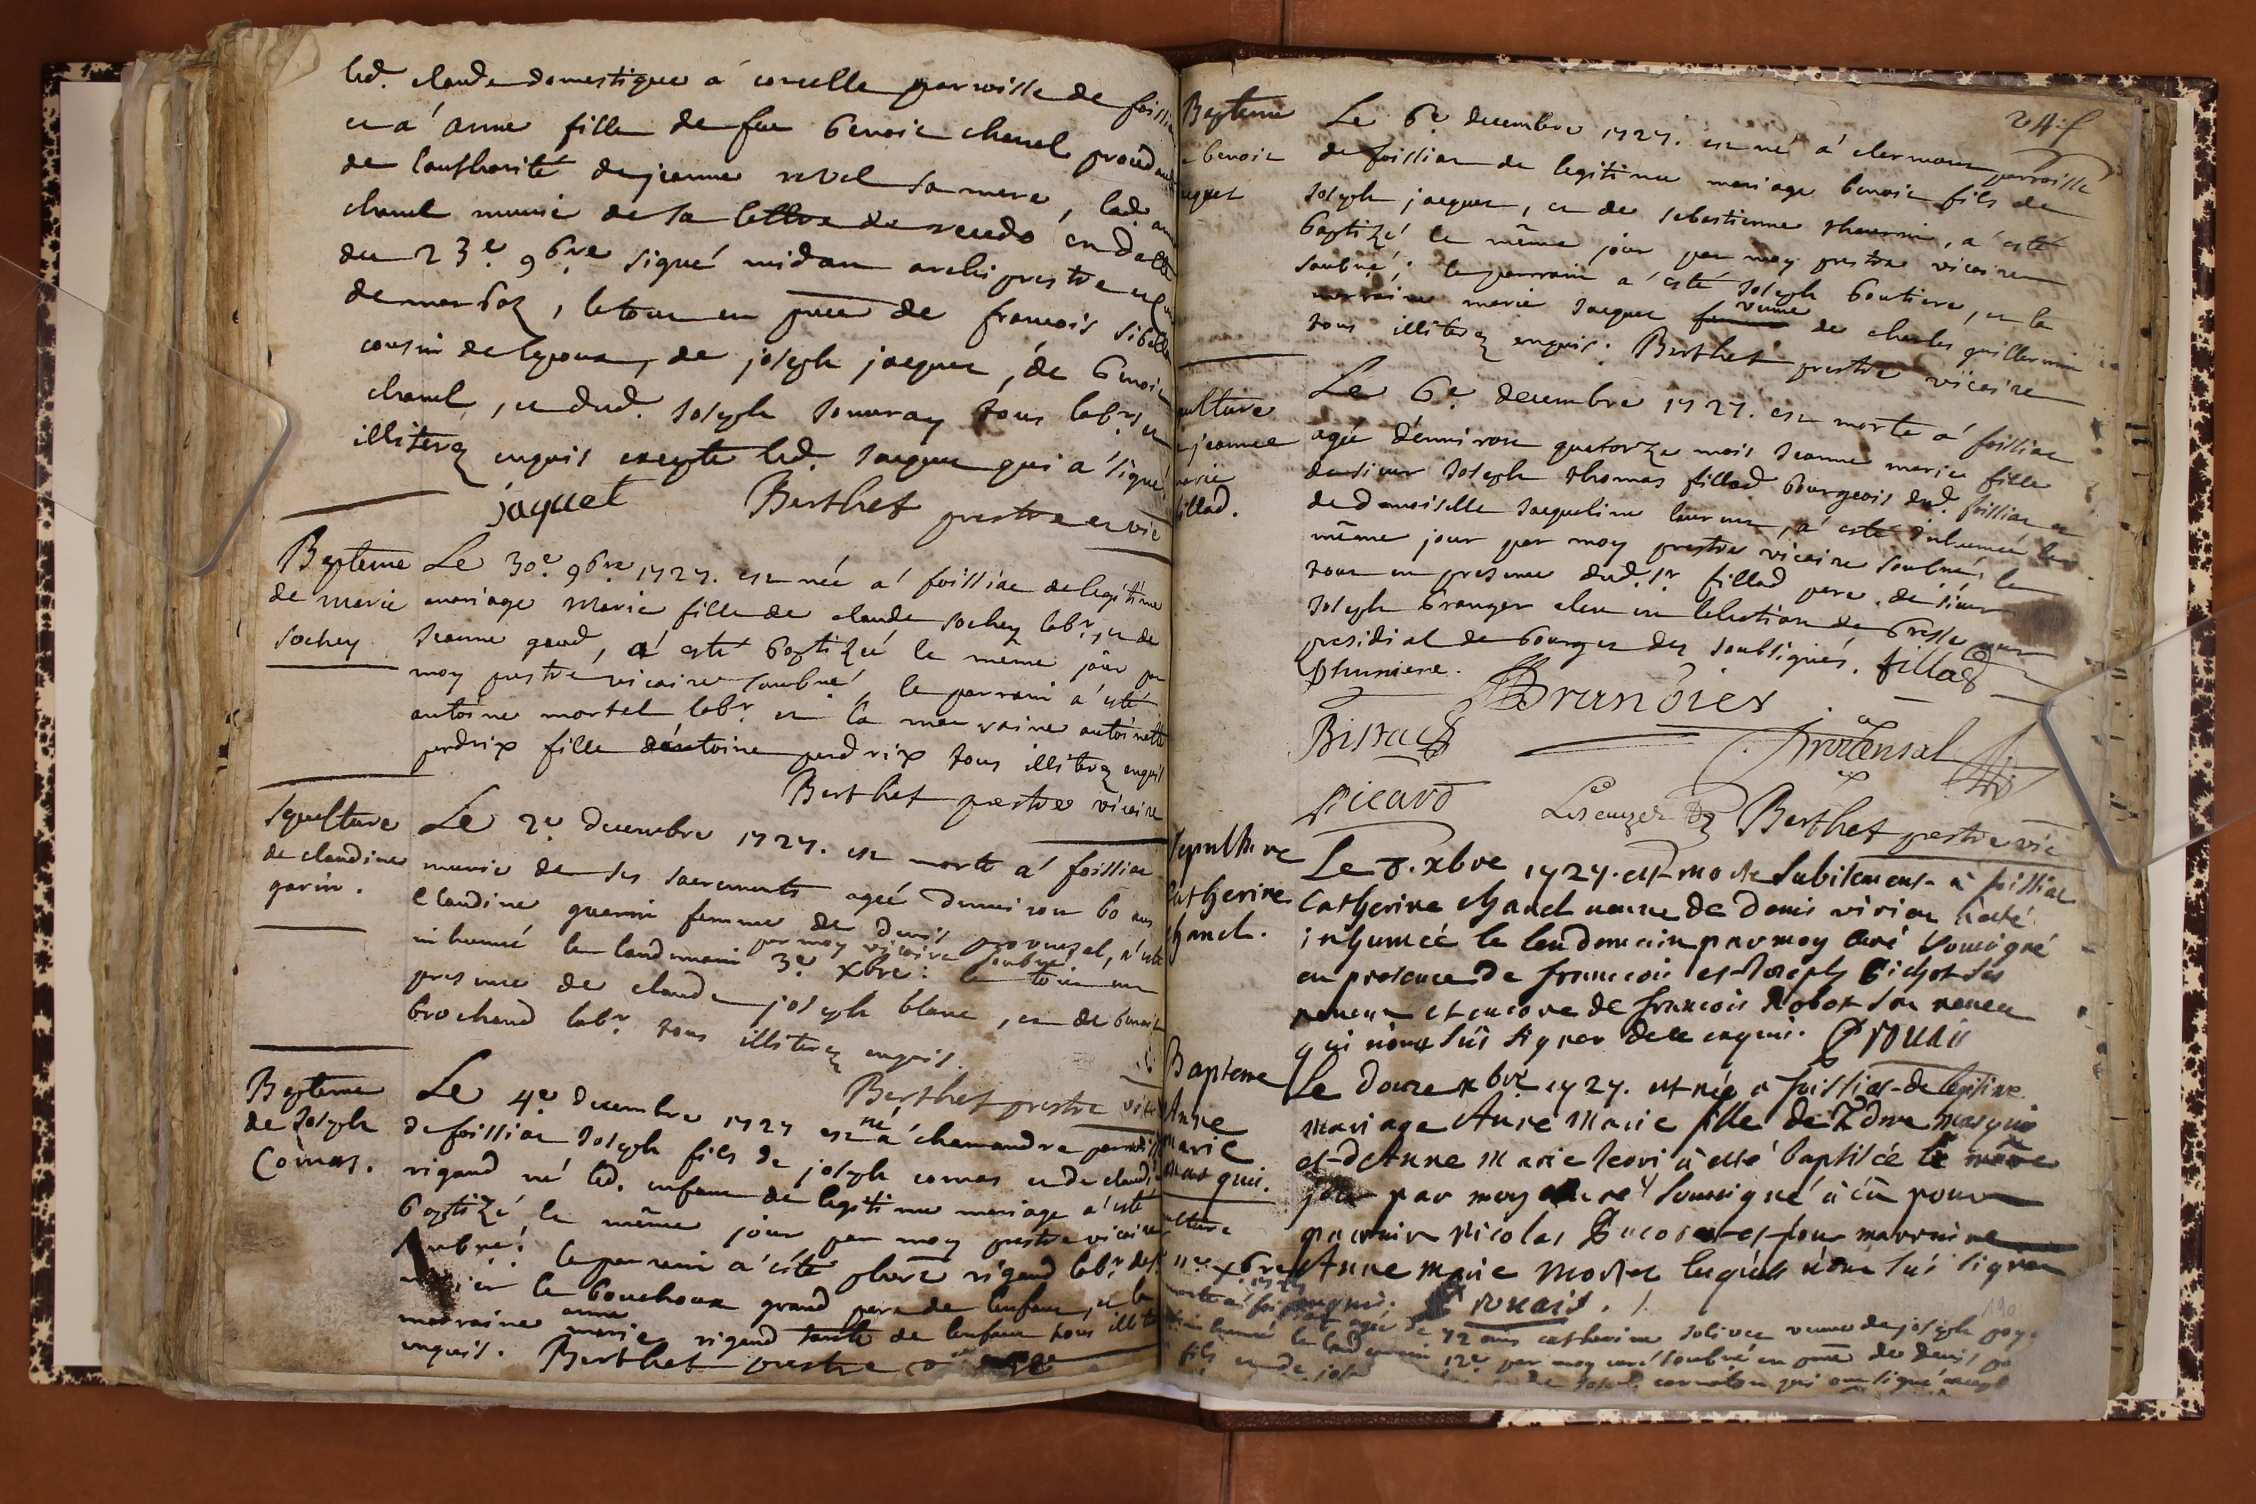 led. claude domestique a' corcelle parroisse de foissia
et a' anne fille de feu benoit chanel procedante
de l'authorité de jeanne revel sa mere, lad. anne
chanel munie de sa lettre de recedo en datte
du 23e. 9bre signé midan archiprestre et curé
de marboz, le tout en pnce de francois sibelle
cousin de lepoux, de joseph jacquet, de benoit
chanel, et dud. Joseph Souvray tous labrs. et
illiterez enquis excepté led. Jacquet qui a' signé
jaquet Berthet prestre et vic
Bapteme
de marie
sochey
Le 30e. 9bre 1727. est née a' foissiat de legitime
mariage Marie fille de claude sochey labr., et de
Jeanne gaud, a' esté baptizée le meme jour par
moy prestre vicaire soubné, le parrain a' esté
antoine mortel labr. et la marraine antoinette
perdrix fille d'antoine perdrix tous illiterez enquis
Berthet prestre vicaire
Sepulture
de claudine
garin.
Le 2e decembre 1727. est morte a' foissiat
munie de ses sacrements agée d'environ 60 ans
Claudine guerin femme de denis provenzal, a' esté
par moy vicaire soubné
inhumée le landemain 3e xbre: le tout en
presence de claude joseph blanc, et de benoit
brochand labr. tous illiterez enquis.
Berthet prestre vic
Bapteme
de Joseph
Cornas.
Le 4e decembre 1727 est né a' chamandre parroisse
de foissiat Joseph fils de joseph cornas et de claudine
rigaud né led. enfant de legitime mariage a' esté
baptizé, le même jour par moy prestre vicaire
soubné: le parrain a' esté rigaud labr. de st
le bouchoux grand pere de lenfant, et la
marraine anne marie rigaud tante de lenfant tous illiterez
enquis. Berthet prestre
24 f
Bapteme
benoit
jacquet
Le 6e decembre 1727. est né a' clermont parroisse
de foissiat de legitime mariage benoit fils de
Joseph jacquet, et de sebastienne thevenin, a' esté
baptizé le même jour par moy prestre vicaire
soubné; le parrain a' esté Joseph boutiere, et la
marraine marie Jacquet veuve de charles guillermin
tous illiterez enquis. Berthet prestre vicaire
sepulture
jeanne
marie
fillod.
Le 6e decembre 1727. est morte a' foissiat
agée d'environ quatorze mois Jeanne marie fille
de sieur Joseph thomas fillod bourgeois dud. foissiat et
de demoiselle Jacqueline, a' esté inhumée le
même jour par moy prestre vicaire soubné; le
tout en presence dud. Sr. fillod pere, de sieur
Joseph branger eleu en lelection de bresse
presidial de bourg et des soubsignés. fillod
Bissac
Provensal
Picard
Berthet prestre vic
Sepulture
Catherine
chanel.
Le 8. xbre 1727. est morte Subitement a foissiat
Catherine chanel veuve de denis vivian a esté
inhumée le lendemain par moy curé soussigné
en presence de francois et Joseph bichot ses
neveux et encore de francois Robot son neveu
qui n'ont sû signer de ce enquis. Prouais
Bapteme
Anne
marie
marquis.
Le douze xbre 1727. est née a foissiat de legitime
mariage Anne marie fille de Edme marquis
et d'Anne marie a esté baptisée le même
jour par moy curé soussigné a eû pour
parrain Nicolas et pour marraine
Anne marie Mortel lequels n'ont sû signer
enquis. Prouais.
sepulture
11e xbre 1727
morte a' foissiat agée de 72 ans catherine solivet veuve de joseph
inhumée le landemain 12e par moy curé soubné en pnce de denis
fils et de joseph et de Joseph qui ont signé
190